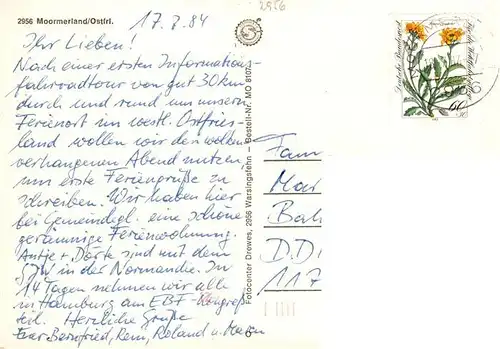 2956 Moormerland/Ostfri.
17.7.84
2956
Ihr Lieben!
Nach einer ersten Informations-
fahrradtour von gut 30 km
durch und rund um unsern
Ferienort im westl. Ostfries-
land wollen wir den wolken-
verhangenen Abend nutzen,
um erste Feriengrüße zu
schreiben. Wir haben hier
bei Gemeindegl. eine schöne
geräumige Ferienwohnung.
Antje + Dörte sind mit dem
in der Normandie. In
14 Tagen nehmen wir alle
in Hamburg am EBF-Kongreß
teil. Herzliche Grüße
Euer Bernfried, Roland u.
Fotocenter Drewes, 2956 Warsingsfehn – Bestell-Nr. MO 8107
Fam
Mar
Bah
D.D.
117
Deutsche Bundespost
60